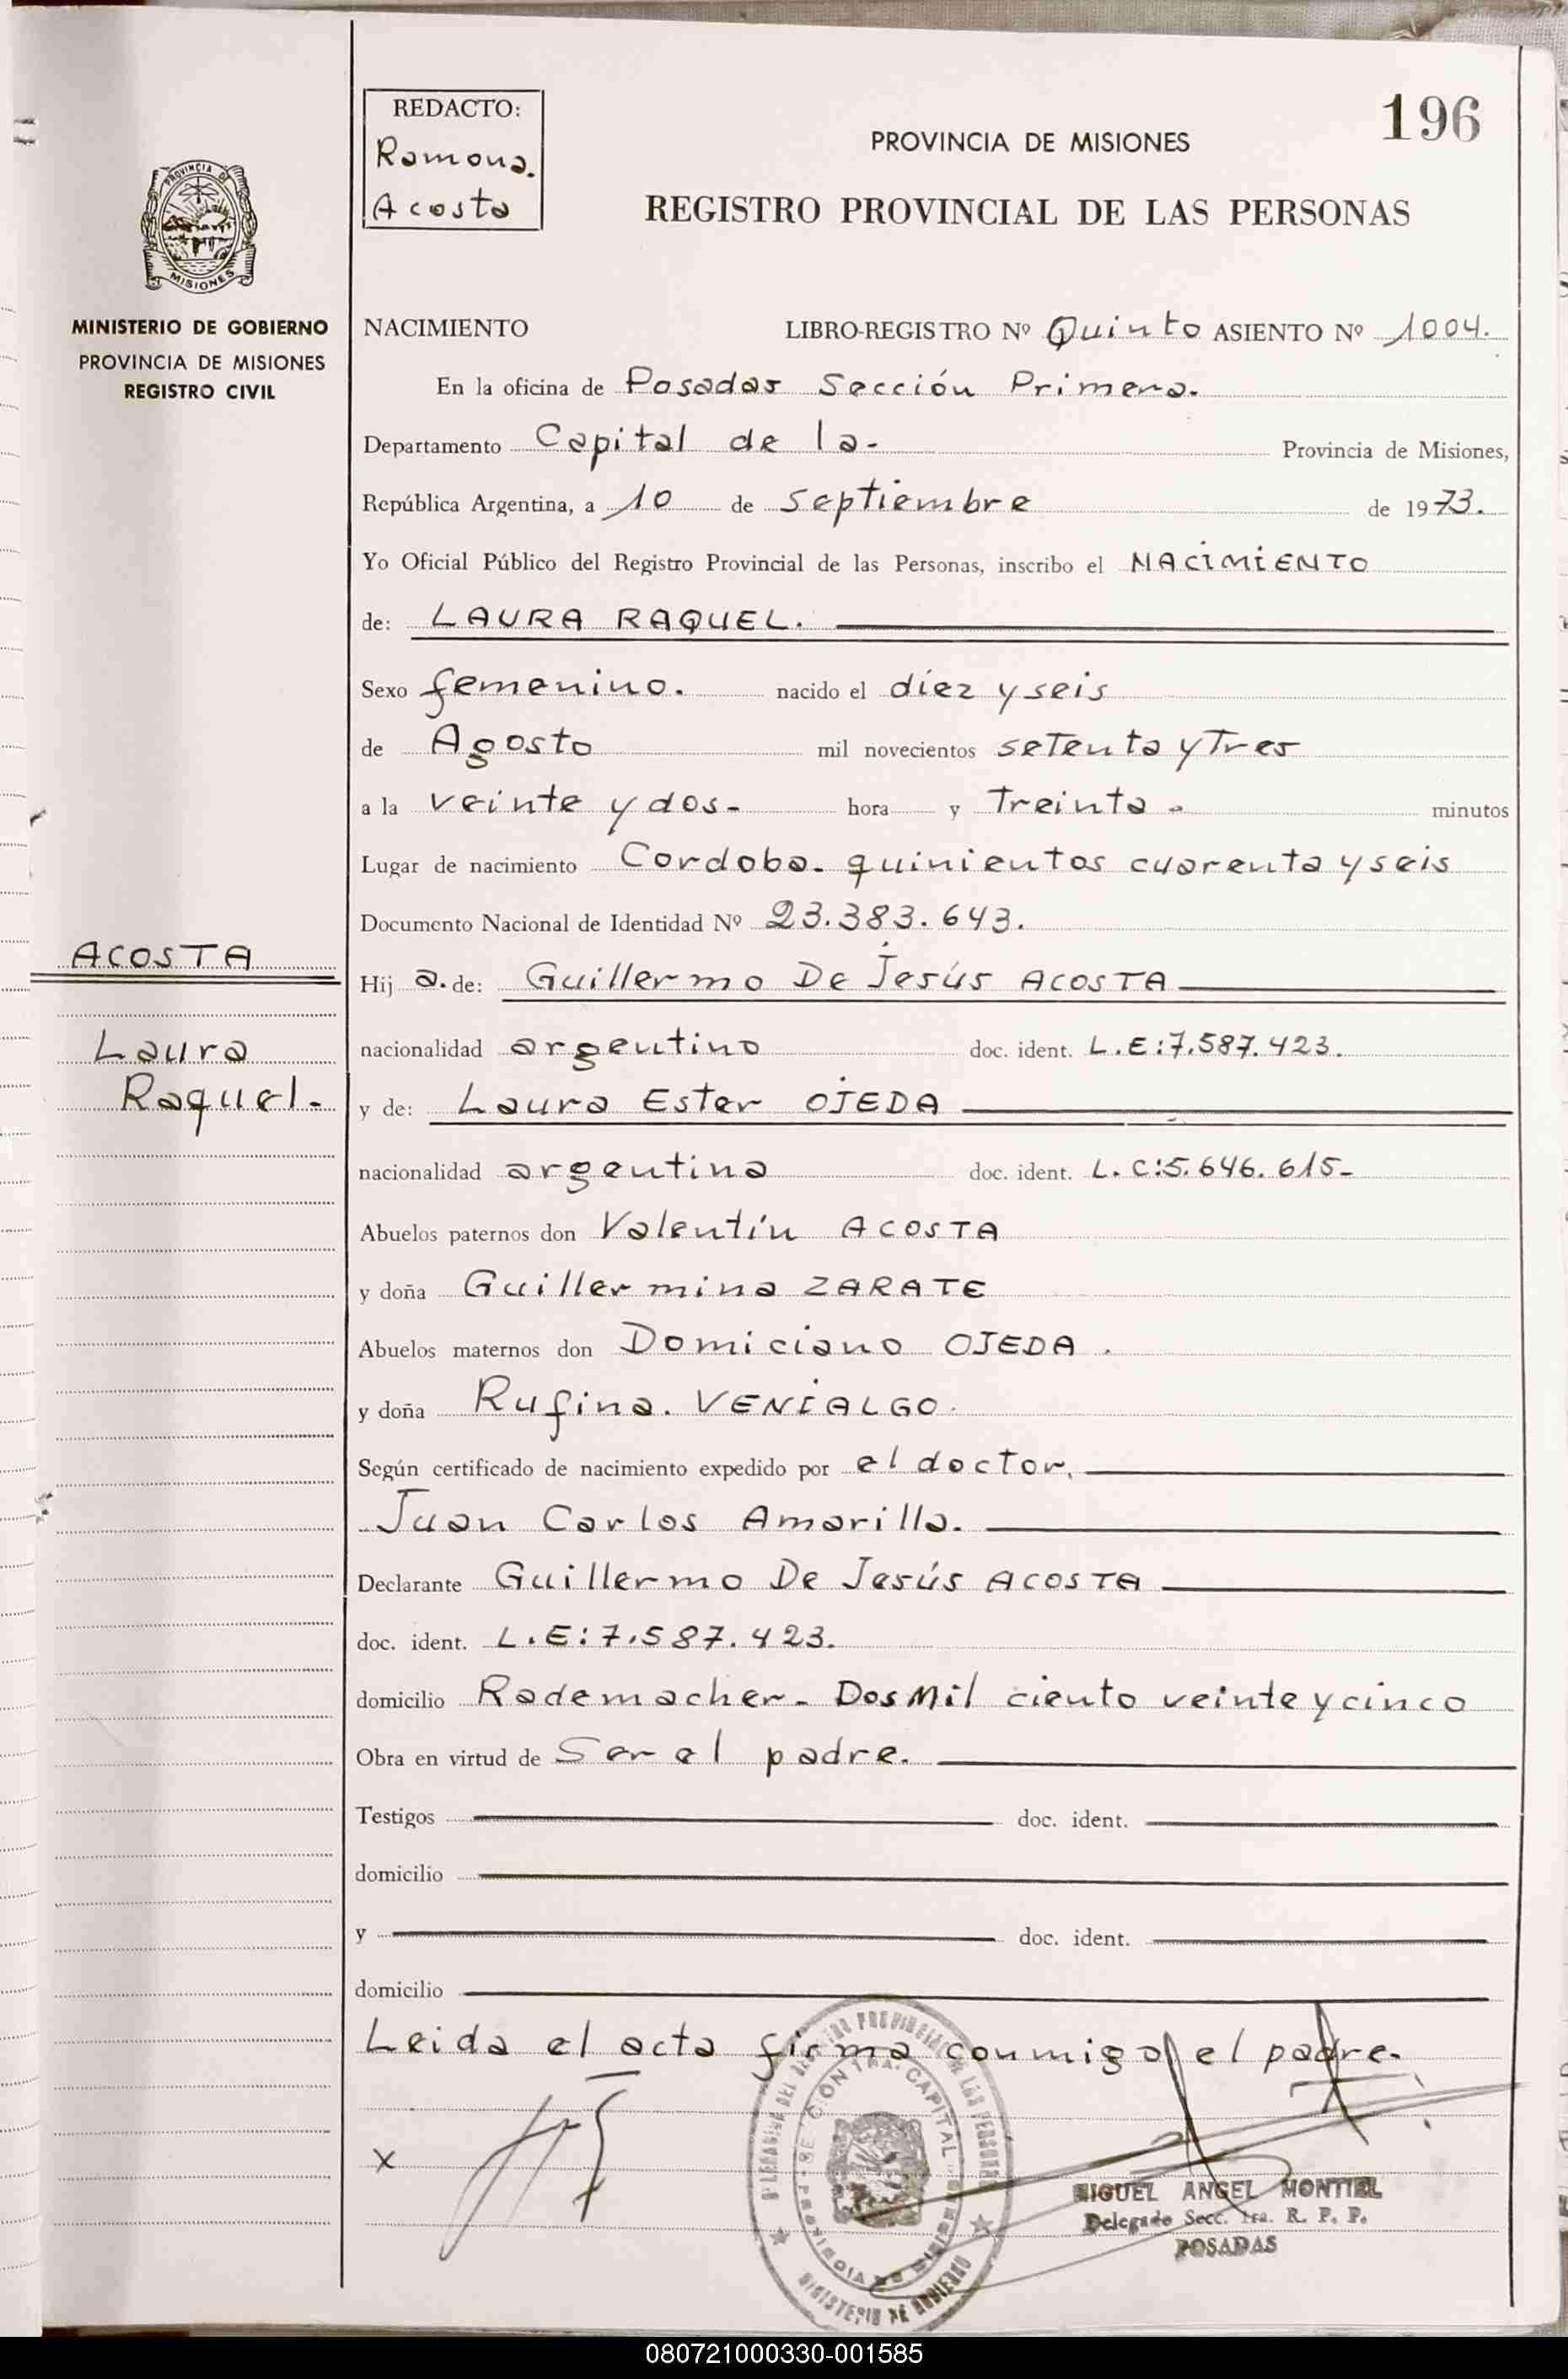 196
REDACTO:
Ramona.
Acosta
PROVINCIA DE MISIONES
REGISTRO PROVINCIAL DE LAS PERSONAS
PROVINCIA DE
MISIONES
MINISTERIO DE GOBIERNO
PROVINCIA DE MISIONES
REGISTRO CIVIL
NACIMIENTO LIBRO-REGISTRO Nº Quinto ASIENTO Nº 1004.
En la oficina de Posadas Sección Primera.
Departamento Capital de la- Provincia de Misiones,
República Argentina, a 10 de septiembre de 1973.
Yo Oficial Público del Registro Provincial de las Personas, inscribo el NACIMIENTO
de: LAURA RAQUEL.
Sexo femenino. nacido el díez y seis
de Agosto mil novecientos setenta y Tres
a la veinte y dos- hora y Treinta - minutos
Lugar de nacimiento Cordoba. quinientos cuarenta y seis
Documento Nacional de Identidad Nº 23.383.643.
ACOSTA
Laura
Raquel-
Hij a. de: Guillermo De Jesús ACOSTA
nacionalidad argentino doc. ident. L.E:7.587.423.
y de: Laura Ester OJEDA
nacionalidad argentina doc. ident. L.C:5.646.615-
Abuelos paternos don Valentín ACOSTA
y doña Guillermina ZARATE
Abuelos maternos don Domiciano OJEDA.
y doña Rufina. VENIALGO.
Según certificado de nacimiento expedido por el doctor,
Juan Carlos Amarilla.
Declarante Guillermo De Jesús ACOSTA
doc. ident. L.E:7.587.423.
domicilio Rademacher- Dos Mil ciento veinte y cinco
Obra en virtud de Ser el padre.
Testigos doc. ident.
domicilio
y doc. ident.
domicilio
Leida el acta firma conmigo el padre.
x
MIGUEL ANGEL MONTIEL
Delegado Secc. 1ra. R. P. P.
POSADAS
MINISTERIO DE GOBIERNO
080721000330-001585